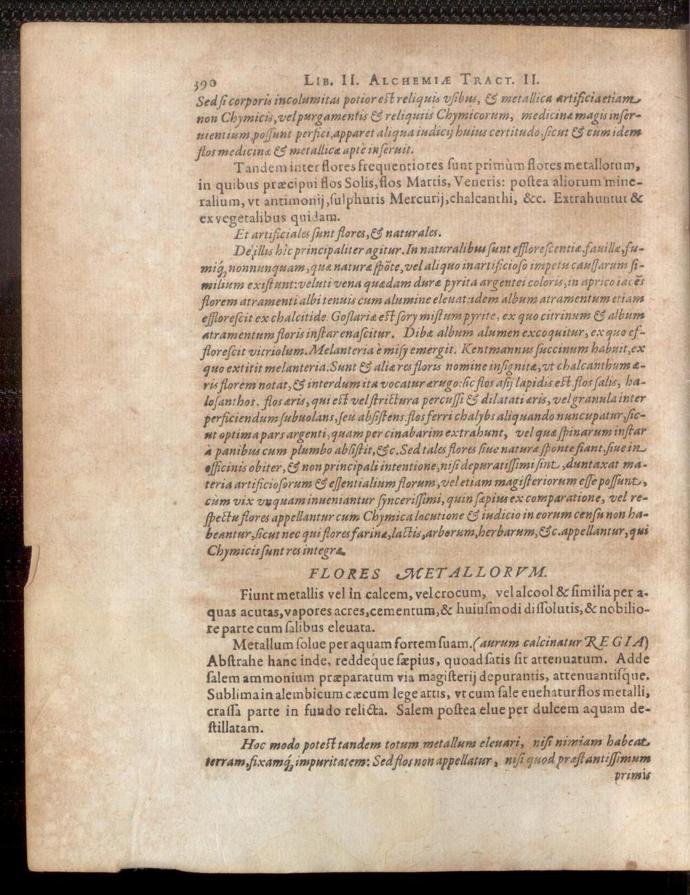 390 LIB. II. ALCHEMIÆ TRACT. II.
Sed si corporis incolumitas potior est reliquis vsibus, & metallica artificia etiam
non Chymicis, vel purgamentis & reliquiis Chymicorum, medicinæ magis inser-
uientium possunt perfici, apparet aliqua iudicij huius certitudo. sicut & cum idem
flos medicinæ & metallicæ aptè inseruit.
Tandem inter flores frequentiores sunt primùm flores metallorum,
in quibus præcipui flos Solis, flos Martis, Veneris: postea aliorum mine-
ralium, vt antimonij, sulphuris Mercurij, chalcanthi, &c. Extrahuntur &
ex vegetalibus quidam.
Et artificiales sunt flores, & naturales.
De illis hîc principaliter agitur. In naturalibus sunt efflorescentiæ, fauillæ, fu-
miq́, nonnunquam, quæ naturæ spōte, vel aliquo inartificioso impetu caussarum si-
milium existunt: veluti vena quædam duræ pyritæ argentei coloris, in aprico iacēs
florem atramenti albi tenuis cum alumine eleuat: idem album atramentum etiam
efflorescit ex chalcitide. Goslariæ est sory mistum pyritę, ex quo citrinum & album
atramentum floris instar enascitur. Dibæ album alumen excoquitur, ex quo ef-
florescit vitriolum. Melanteria è misy emergit. Kentmannus succinum habuit, ex
quo extitit melanteria. Sunt & aliæ res floris nomine insignitæ, vt chalcanthum æ-
ris florem notat, & interdum ita vocatur ærugo: sic flos asij lapidis est flos salis, ha-
losanthos, flos æris, qui est vel strictura percussi & dilatati æris, vel granula inter
perficiendum subuolans, seu absistens. flos ferri chalybs aliquando nuncupatur, sic-
ut optima pars argenti, quam per cinabarim extrahunt, vel quæ spinarum instar
à panibus cum plumbo absistit, &c. Sed tales flores siue naturæ sponte fiant, siue in
officinis obiter, & non principali intentione, nisi depuratissimi sint, duntaxat ma-
teria artificiosorum & essentialium florum, vel etiam magisteriorum esse possunt,
cum vix vnquam inueniantur syncerissimi, quin sæpius ex comparatione, vel re-
spectu flores appellantur cum Chymica locutione & iudicio in eorum censu non ha-
beantur, sicut nec qui flores farinæ, lactis, arborum, herbarum, &c. appellantur, qui
Chymicis sunt res integræ.
FLORES METALLORVM.
Fiunt metallis vel in calcem, vel crocum, vel alcool & similia per a-
quas acutas, vapores acres, cementum, & huiusmodi dissolutis, & nobilio-
re parte cum salibus eleuata.
Metallum solue per aquam fortem suam. (aurum calcinatur REGIA)
Abstrahe hanc inde, reddeque sæpius, quoad satis sit attenuatum. Adde
salem ammonium præparatum via magisterij depurantis, attenuantisque.
Sublima in alembicum cæcum lege artis, vt cum sale euehatur flos metalli,
crassa parte in fundo relicta. Salem postea elue per dulcem aquam de-
stillatam.
Hoc modo potest tandem totum metallum eleuari, nisi nimiam habeat
terram, fixamq́, impuritatem: Sed flos non appellatur, nisi quod præstantissimum
primis